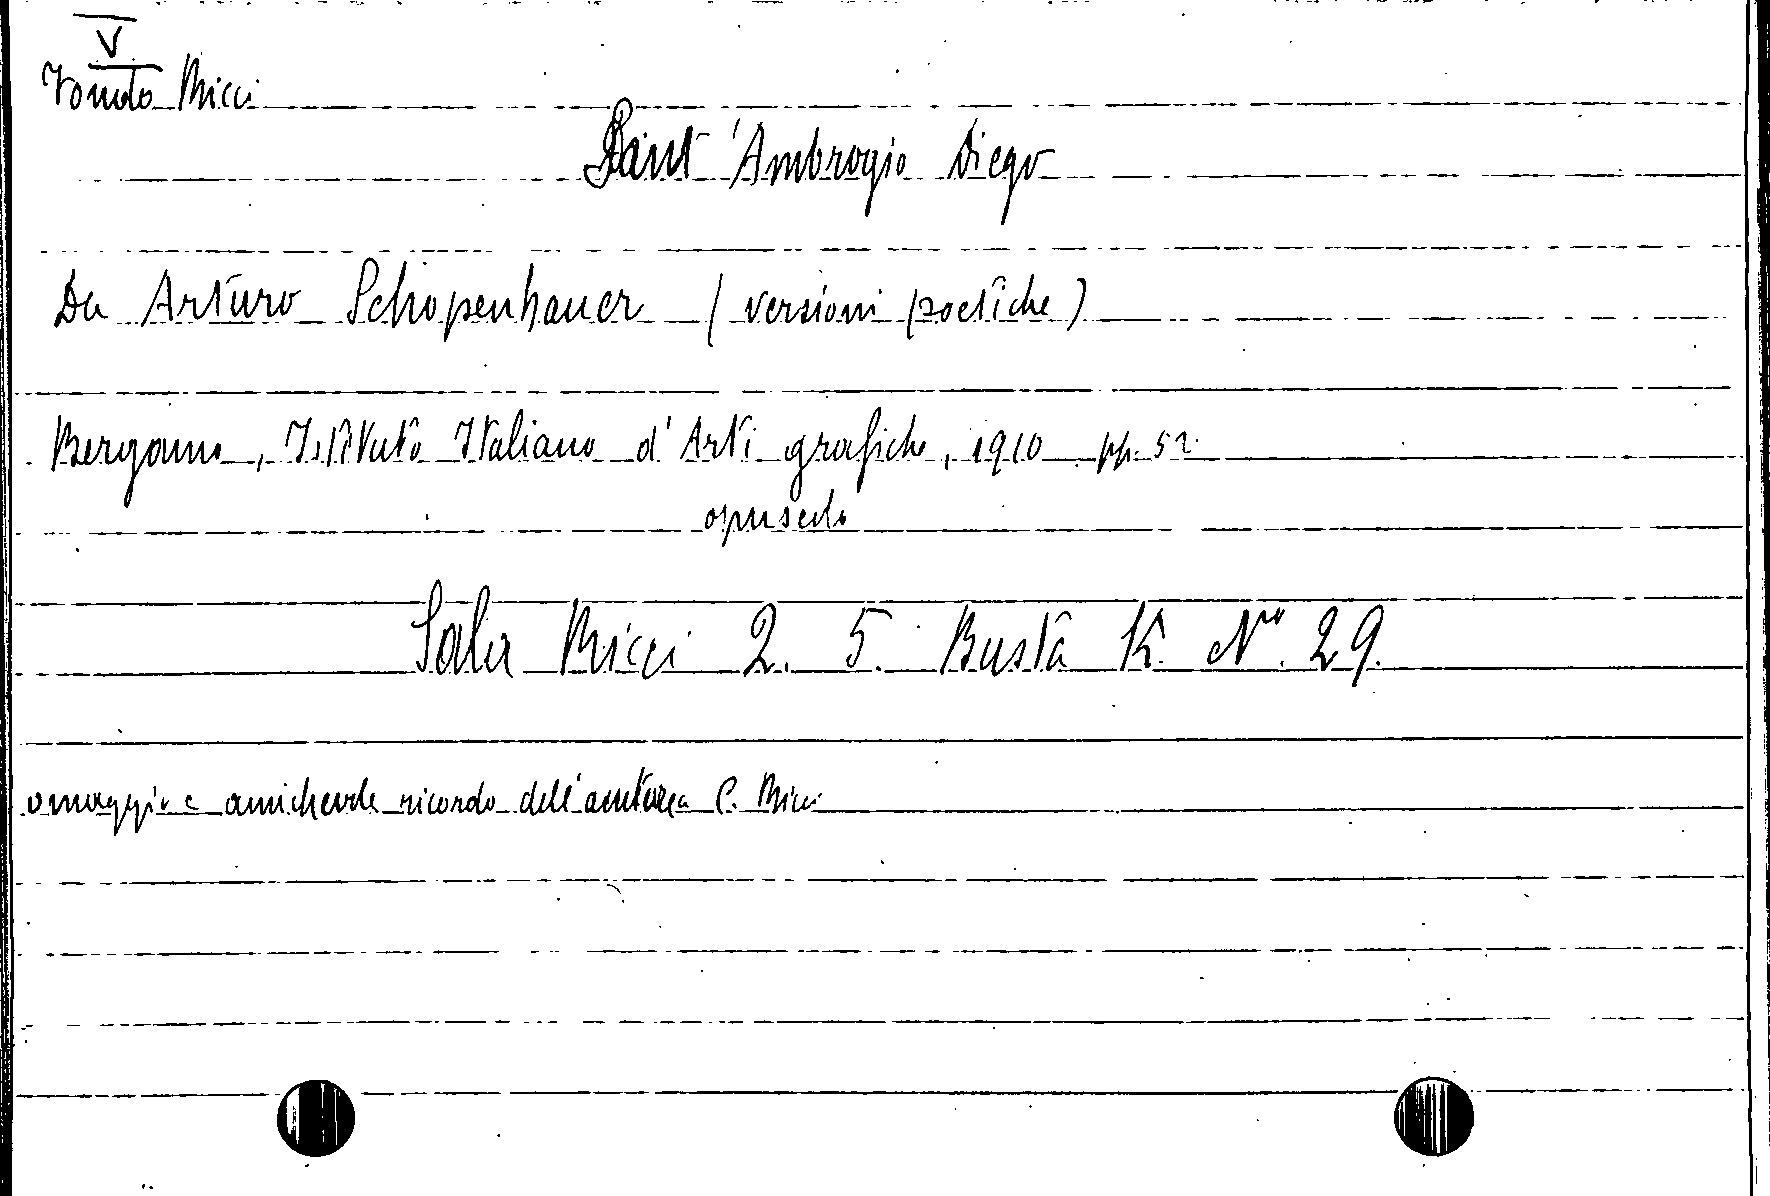 V
Fondo Ricci
Sant'Ambrogio Diego
Da Arturo Schopenhauer (versioni poetiche)
Bergamo, Istituto Italiano d'Arti grafiche, 1910 pp. 52
opuscolo
Sala Ricci 2. 5. Busta K. N° 29.
omaggio e amichevole ricordo dell'autore a C. Ricci